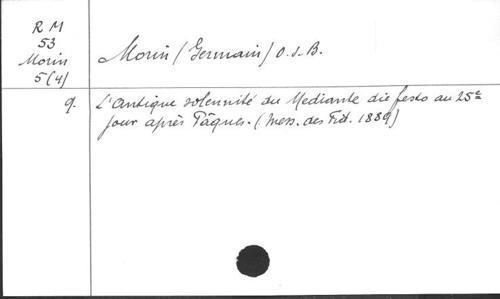 R M
53
Morin
5(4)
Morin (Germain) O.S.B.
9. L'antique solennité du Mediante die festo au 25e
jour après Pâques. (Mess. des Fid. 1889)